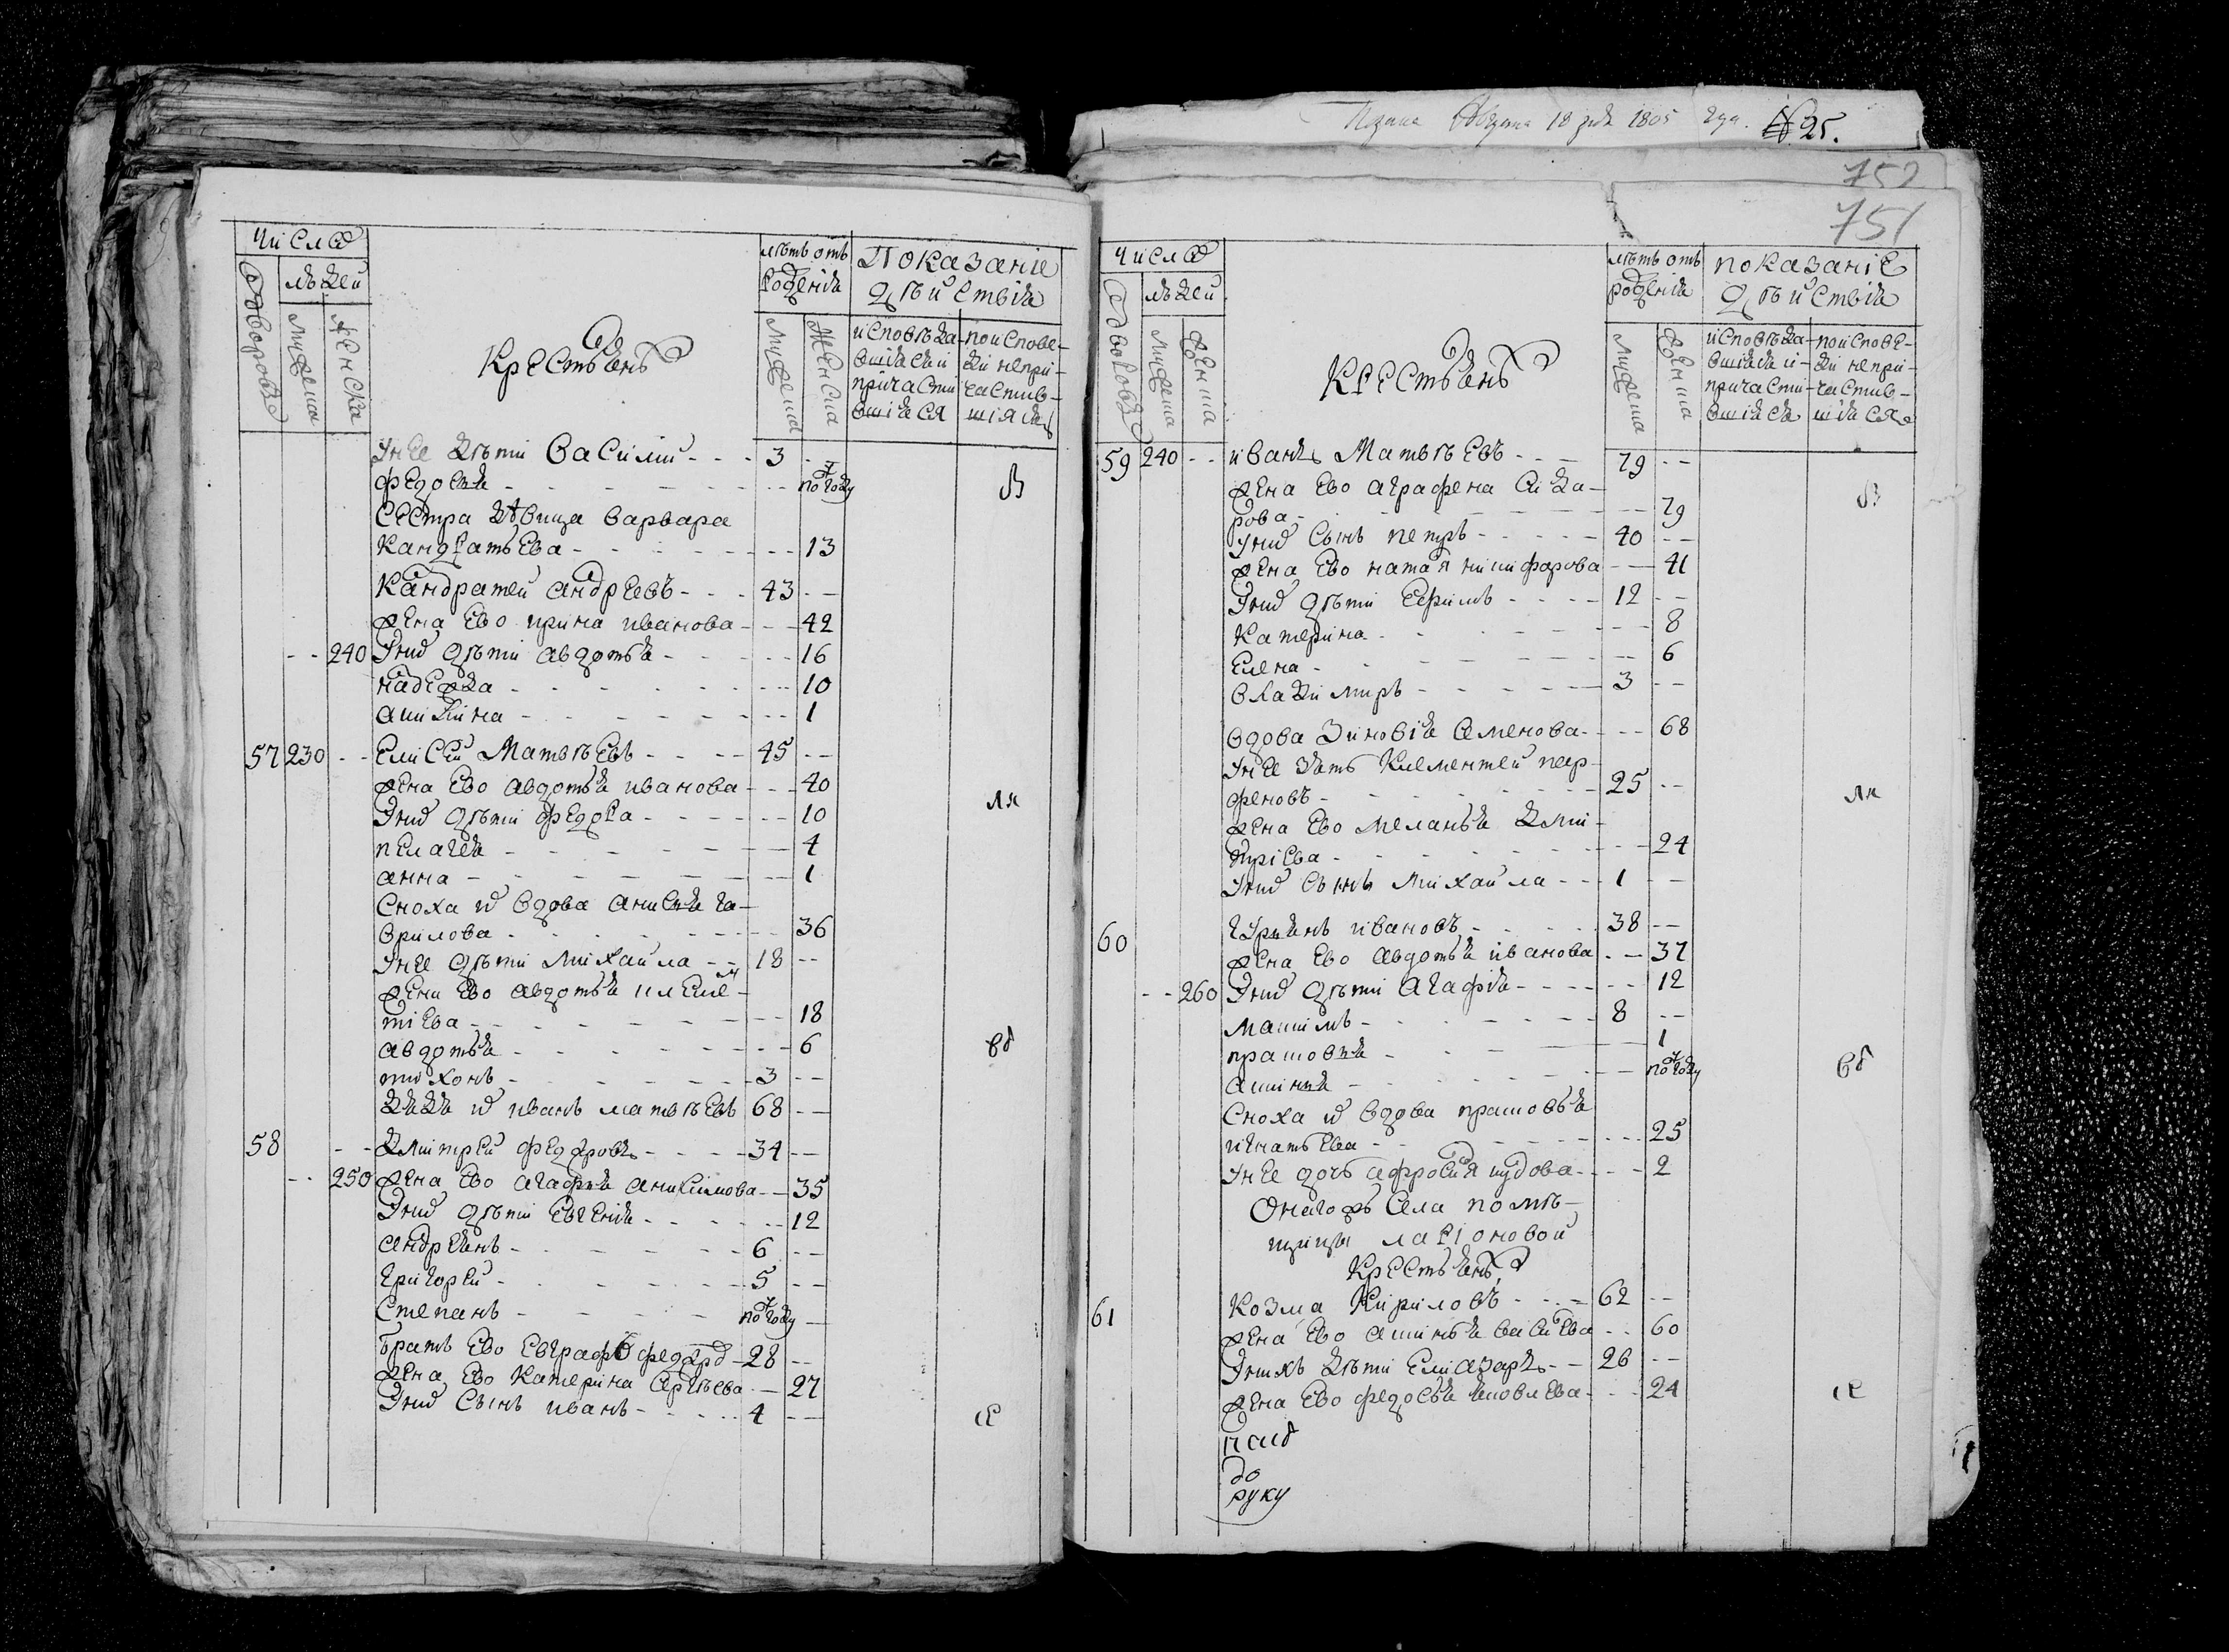 Числѡ
людей
дворовъ
Мужеска
Женска
Крестьянъ
лѣтъ отъ рожденія
Мужеска
Женска
Показаніе дѣйствія
исповѣдавшіяся и причастившіяся
по исповеди непричастившіяся
У нее дѣти Василий - - - 3 - -
Федосья - - - - по году
Сестра дѣвица Варвара
Кандратьева - - - - 13
Кандратей андреевъ - - - 43 - -
жена Ево ирина иванова - - - 42
- - 240 У нихъ дѣти авдотья - - - 16
надежда - - - - 10
акилина - - - - 1
57 230 - - Елисей Матвѣевъ - - - 45 - -
жена Ево авдотья иванова - - - 40
У нихъ дѣти федора - - - 10
пелагея - - - - 4
анна - - - - 1
Сноха и вдова анисья га-
врилова - - - - 36
У нее дѣти Михаила - - 18 - -
жена Ево авдотья клемен-
тіева - - - - 18
авдотья - - - - 6
тихонъ - - - - 3 - -
дядя и иванъ матвѣевъ 68 - -
58 - - Дмитрей федоровъ - - - 34 - -
- - 250 жена Ево агафья анисимова - - 35
У нихъ дѣти Евгенія - - - 12
андреянъ - - - - 6 - -
григорей - - - - 5 - -
Степанъ - - - - по году - -
братъ Ево Евграфъ федоровъ - 28 - -
жена Ево Катерина Сергѣева - - 27
У нихъ Сынъ иванъ - - - 4 - -
1805 года. № 25.
752
751
Числѡ
людей
дворовъ
Мужеска
Женска
Крестьянъ
лѣтъ отъ рожденія
Мужеска
Женска
показаніе дѣйствія
исповѣдавшіяся и причастившіяся
по исповеди непричастившіяся
59 240 - - иванъ Матвѣевъ - - - 79 - -
жена Ево аграфена Сида-
рова - - - - 79
У нихъ Сынъ петръ - - - 40 - -
жена Ево наталя никифорова - - 41
У нихъ дѣти Ефимъ - - - 12 - -
Катерина - - - - 8
Елена - - - - 6
владимиръ - - - - 3 - -
вдова Зиновія Семенова - - - 68
У нее зять Клементей пар-
феновъ - - - - 25 - -
жена Ево меланья дми-
тріева - - - - 24
У нихъ Сынъ Михаила - - 1 - -
60 гурьянъ ивановъ - - - 38 - -
жена Ево авдотья иванова - - 37
- - 260 У нихъ дѣти Агафія - - - 12
Макимъ - - - - 8 - -
прасковья - - - - 1
аксинья - - - - по году
Сноха и вдова прасковья
игнатьева - - - - 25
У нее дочь афросиня - - - 2
Онагожъ Села помѣ-
щицы ларіоновой
Крестьянъ
61 Козма Кириловъ - - - 62 - -
жена Ево аксинья васильева - - 60
У нихъ дѣти Елиазаръ - - 26 - -
жена Ево федосья яковлева - - 24
руку